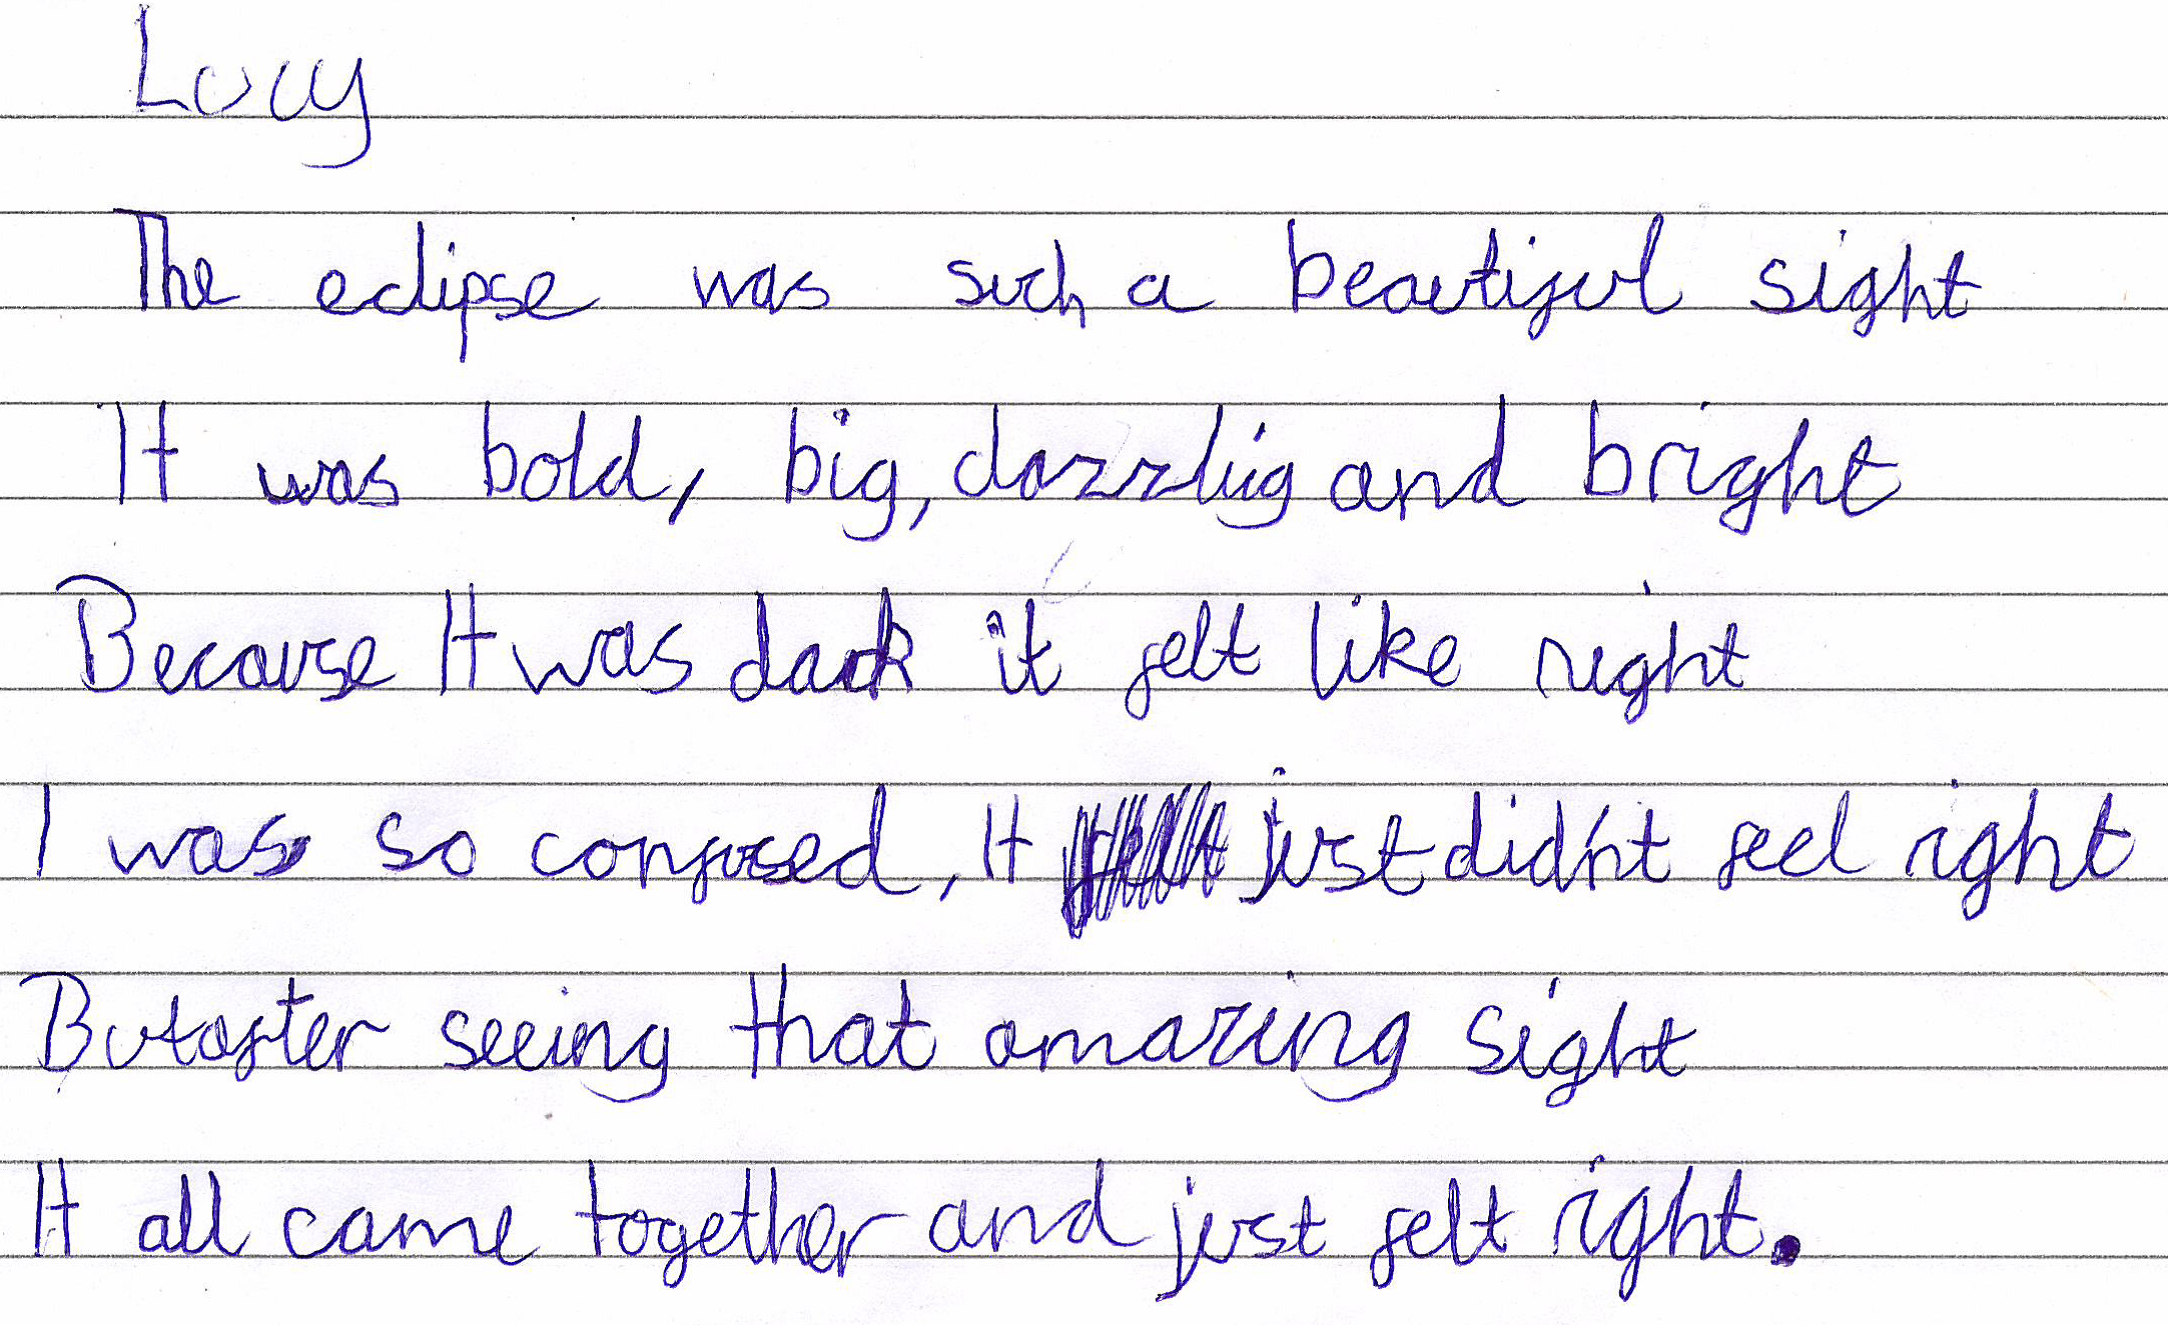 Lucy
The eclipse was such a beautiful sight
It was bold, big, dazzling and bright
Because It was dark it felt like night
I was so confused, It just didn't feel right
But after seeing that amazing sight
It all came together and just felt right.